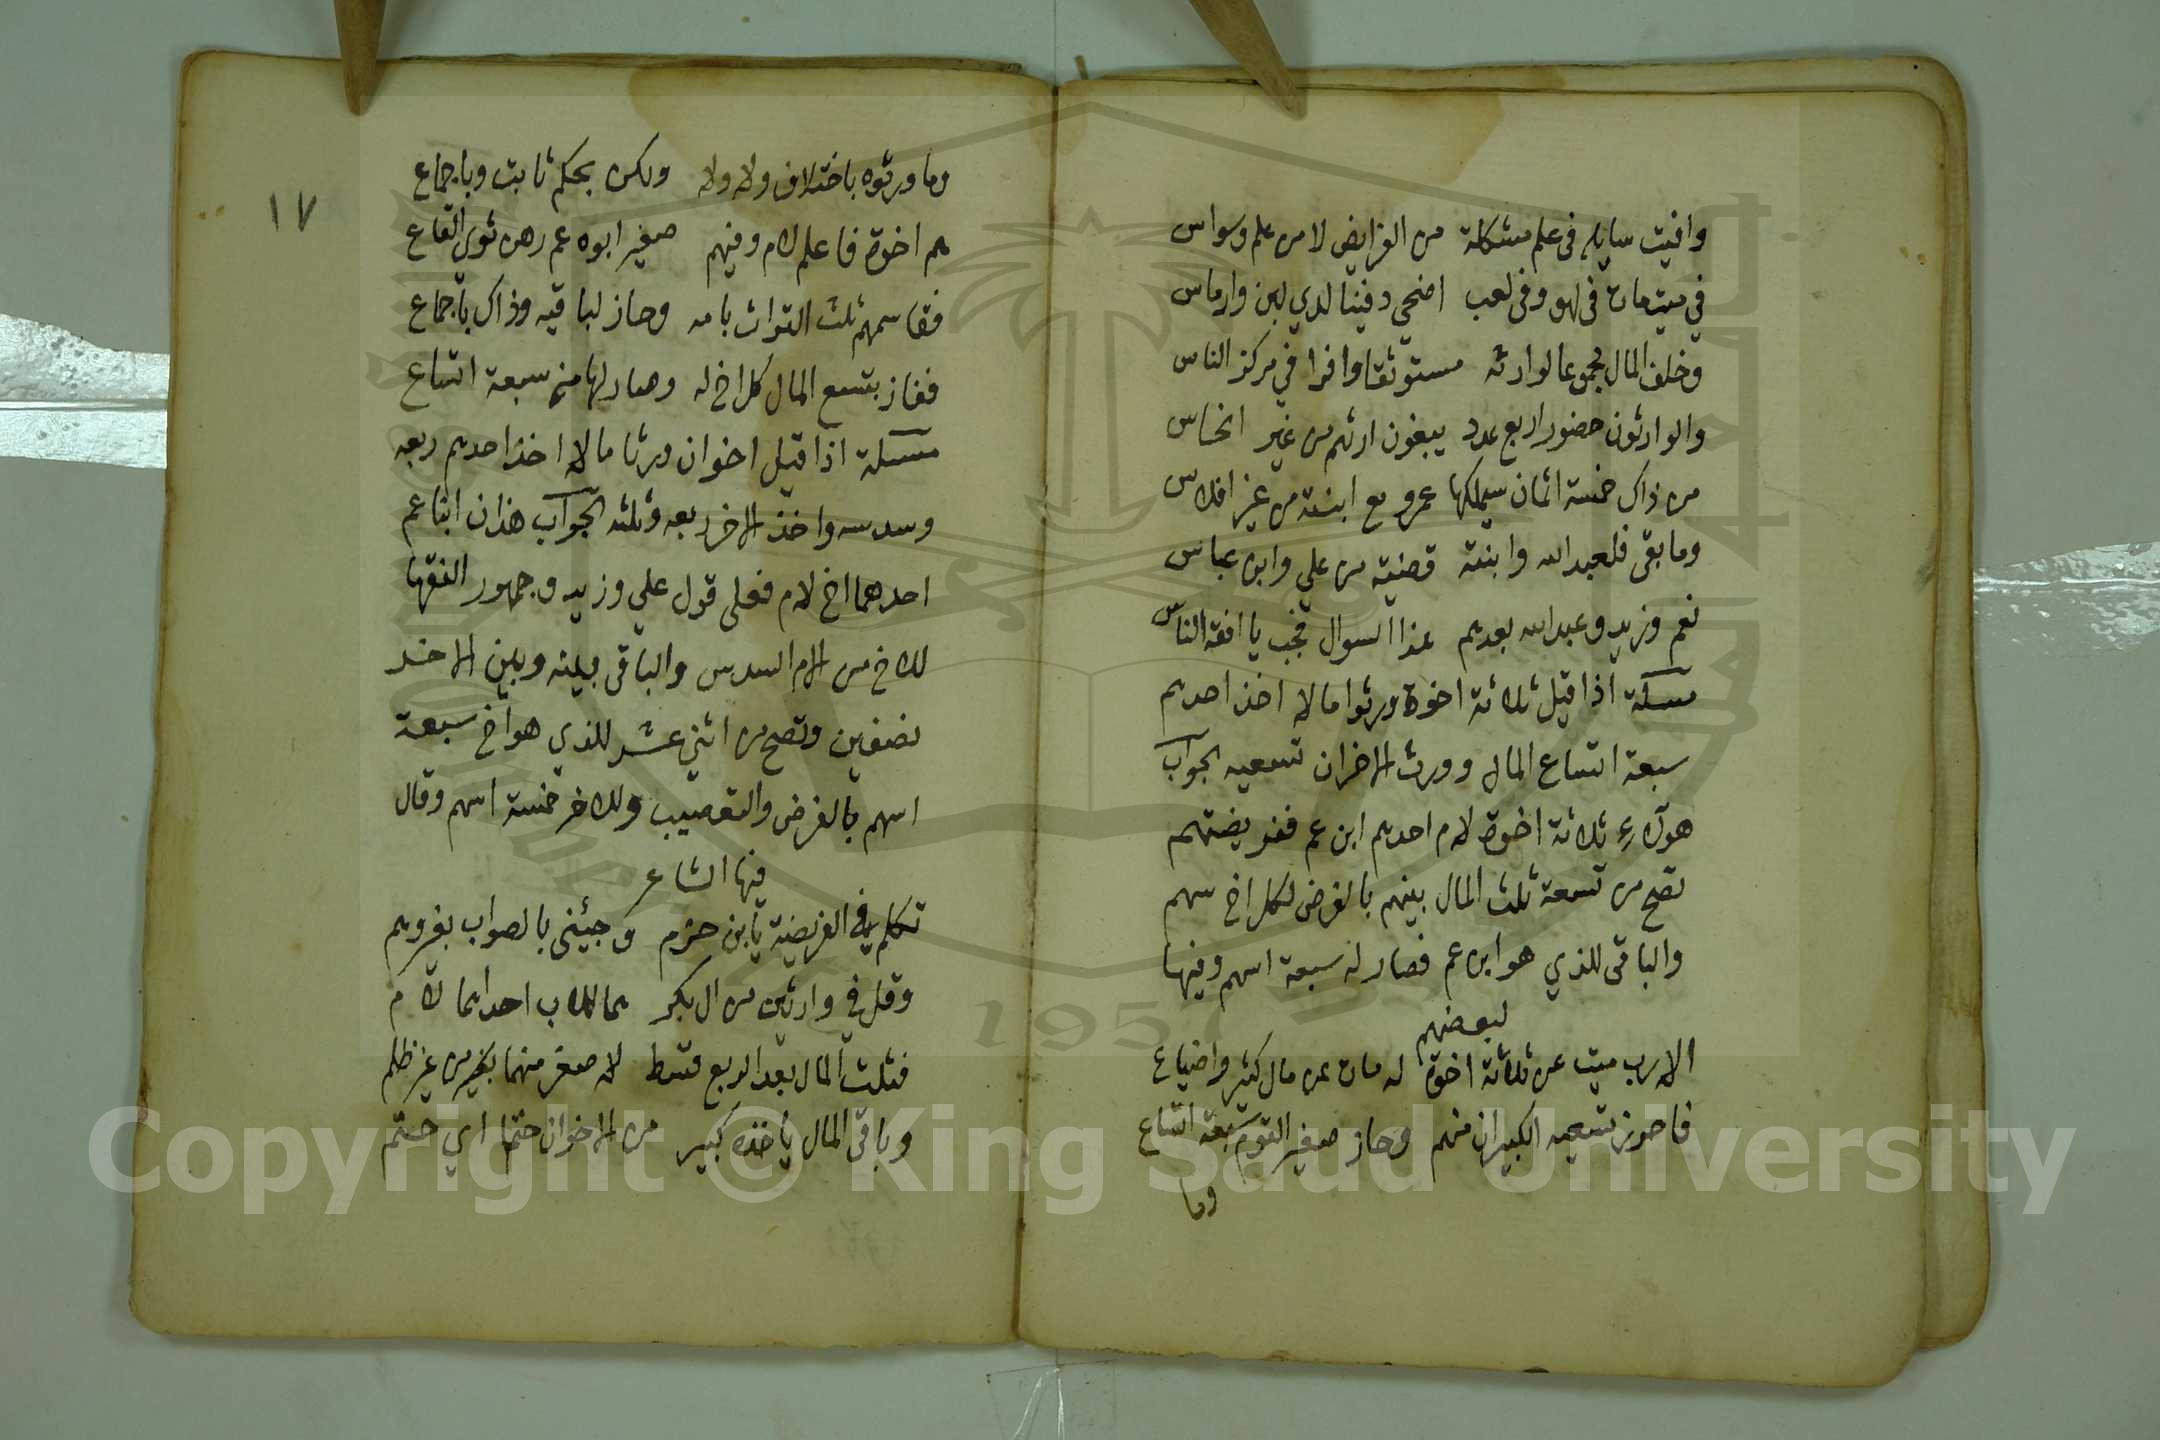 وافيت سايله في علم مشكلة من الفرايض لا من علم وسواس
في ميت مات في لهو وفي لعب اضحي دفينا لدي لبن وارماس
وخلف المال مجموعا لوارثه مستوثقا وافرا في مركز الناس
والوارثون حضور اربع عدد يبغون ارثهم من غير انحاس
من ذاك خمسة اثمان سيملكها عمرو مع ابنته من غير افلاس
وما بقي فلعبد الله وابنته قضية من علي وابن عباس
نعم وزيد وعبد الله بعدهم هذا السوال فجب يا افقه الناس
مسئلة اذا قيل ثلاثة اخوة ورثوا مالا اخذ احدهم
سبعة اتساع المال وورث الاخران تسعيه الجواب
هولاء ثلاثة اخوة لام احدهم ابن عم ففريضتهم
تصح من تسعة ثلث المال بينهم بالفرض لكل اخ سهم
والباقي للذي هو ابن عم فصار له سبعة اسهم وفيها
لبعضهم
الا رب ميت عن ثلاثة اخوة له مات عن مال كثير واضياع
فاحوز تسعيه الكبيران منهم وحاز صغير القوم سبعة اتساع
وما
١٧
وما ورثوه باختلاف ولا ولا ولكن بحكم ثابت وباجماع
هم اخوة فاعلم لام وفيهم صغير ابوه عم رهن ثوى القاع
فقاسمهم ثلث التراث بامه وحاز لباقيه وذاك باجماع
ففاز بتسع المال كل اخ له وصار لها منه سبعة اتساع
مسئلة اذا قيل اخوان ورثا مالا اخذ احدهم ربعه
وسدسه واخذ الاخر ربعه وثلثه الجواب هذان ابنا عم
احدهما اخ لام فعلى قول علي وزيد وجمهور الفقها
للاخ من الام السدس والباقي بينه وبين الاخر
نصفين وتصح من اثني عشر للذي هو اخ سبعة
اسهم بالفرض والتعصيب وللاخر خمسة اسهم وقال
فيها الشاعر
تكلم في الفريضة يا بن حزم وجيئني بالصواب بغير وهم
وقل في وارثين من ال بكر هما للاب احداهما لام
فثلث المال بعد الربع قسط لاصغر منهما بخير من غير ظلم
وباقي المال ياخذه كبير من الاخوان حتما اي حتم
Copyright © King Saud University
1957